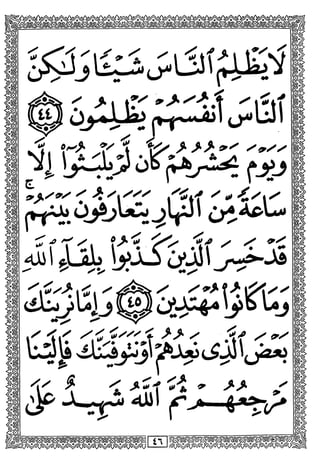 لَا يَظْلِمُ ٱلنَّاسَ شَيْـًٔا وَلَٰكِنَّ
ٱلنَّاسَ أَنفُسَهُمْ يَظْلِمُونَ ٤٤
وَيَوْمَ يَحْشُرُهُمْ كَأَن لَّمْ يَلْبَثُوٓا۟ إِلَّا
سَاعَةً مِّنَ ٱلنَّهَارِ يَتَعَارَفُونَ بَيْنَهُمْ ۚ
قَدْ خَسِرَ ٱلَّذِينَ كَذَّبُوا۟ بِلِقَآءِ ٱللَّهِ
وَمَا كَانُوا۟ مُهْتَدِينَ ٤٥ وَإِمَّا نُرِيَنَّكَ
بَعْضَ ٱلَّذِى نَعِدُهُمْ أَوْ نَتَوَفَّيَنَّكَ فَإِلَيْنَا
مَرْجِعُهُمْ ثُمَّ ٱللَّهُ شَهِيدٌ عَلَىٰ
٤٦